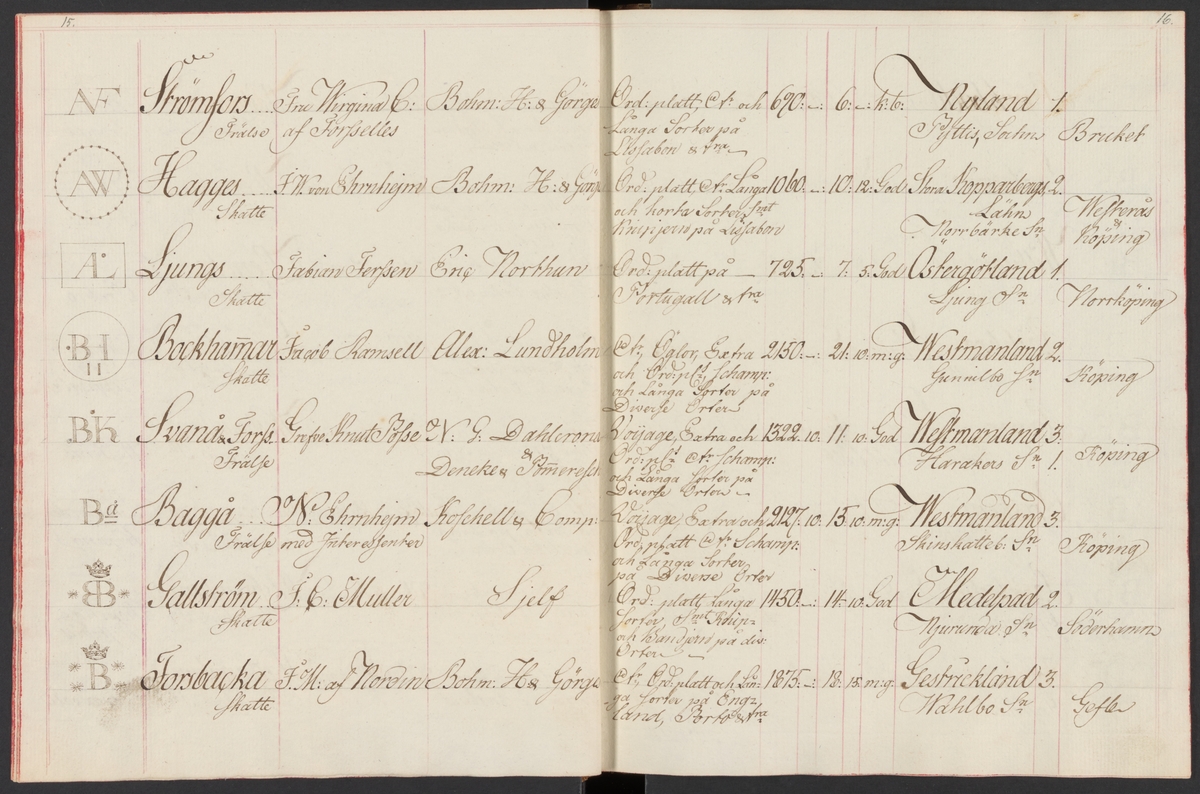 15.
16.
AF Strömfors Fru Virgina C: Bohm: H: & Görges Ord: platt, Ct: och 690:–: 6:–: k:6: Nyland 1.
Frälse af Forsselles Långa Sorter på Pyttis, Sochn Bruket
Lissabon & fra
AW Hagges J. W. von Ehrenheijm Bohm: H: & Görges Ord: platt, Ct: Långa 1060:–: 10:12: God Stora Kopparbergs 2.
Skatte och korta Sorter, Smt Lähn Westerås
Knipjern på Lissabon Norrbärke Sn & Köping
AL Ljungs Fabian Fersen Eric Northun Ord: platt på 725:–: 7:5: God Östergötland 1.
Skatte Portugall & fra Ljung Sn Norrköping
BH II Bockhammar Jacob Ramsell Alex: Lundholm Ct:, Öglor, Extra 2150:–: 21:10: m:g: Westmanland 2.
Skatte och Ord: plt, Schamp: Gunnilbo Sn Köping
och Långa Sorter på
Diverse Orter
BK Svanå & Forss Grefve Knut Posse N: G: Dahlerona Voijage, Extra och 1322:10: 11:10: God Westmanland 3.
Frälse Deneke & Pommeresch Ord: plt Ct: Schamp: Harakers Sn 1. Köping
och Långa Sorter på
Diverse Orter
Bå Baggå N: Ehrnheijm Koschell & Comp: Voijage, Extra och 2127:10: 15:10: m:g: Westmanland 3.
Frälse med Interessenter Ord: platt Ct: Schamp: Skinskatteb: Sn Köping
och Långa Sorter
på Diverse Orter
*BB* Galtström J: C: Muller Sjelf Ord: platt, Långa 1450:–: 14:10: God Medelpad 2.
Skatte Sorter, Smt Knip- Njurunda Sn Söderhamn
och Bandjern på div:
Orter
*B* Forsbacka J: M: af Nordin Bohm: H & Görges Ct:, Ord: platt och Lån- 1875:–: 18:15: m:g: Gestrickland 3.
Skatte ga Sorter på Eng- Wahlbo Sn Gefle
land, Porto & fra